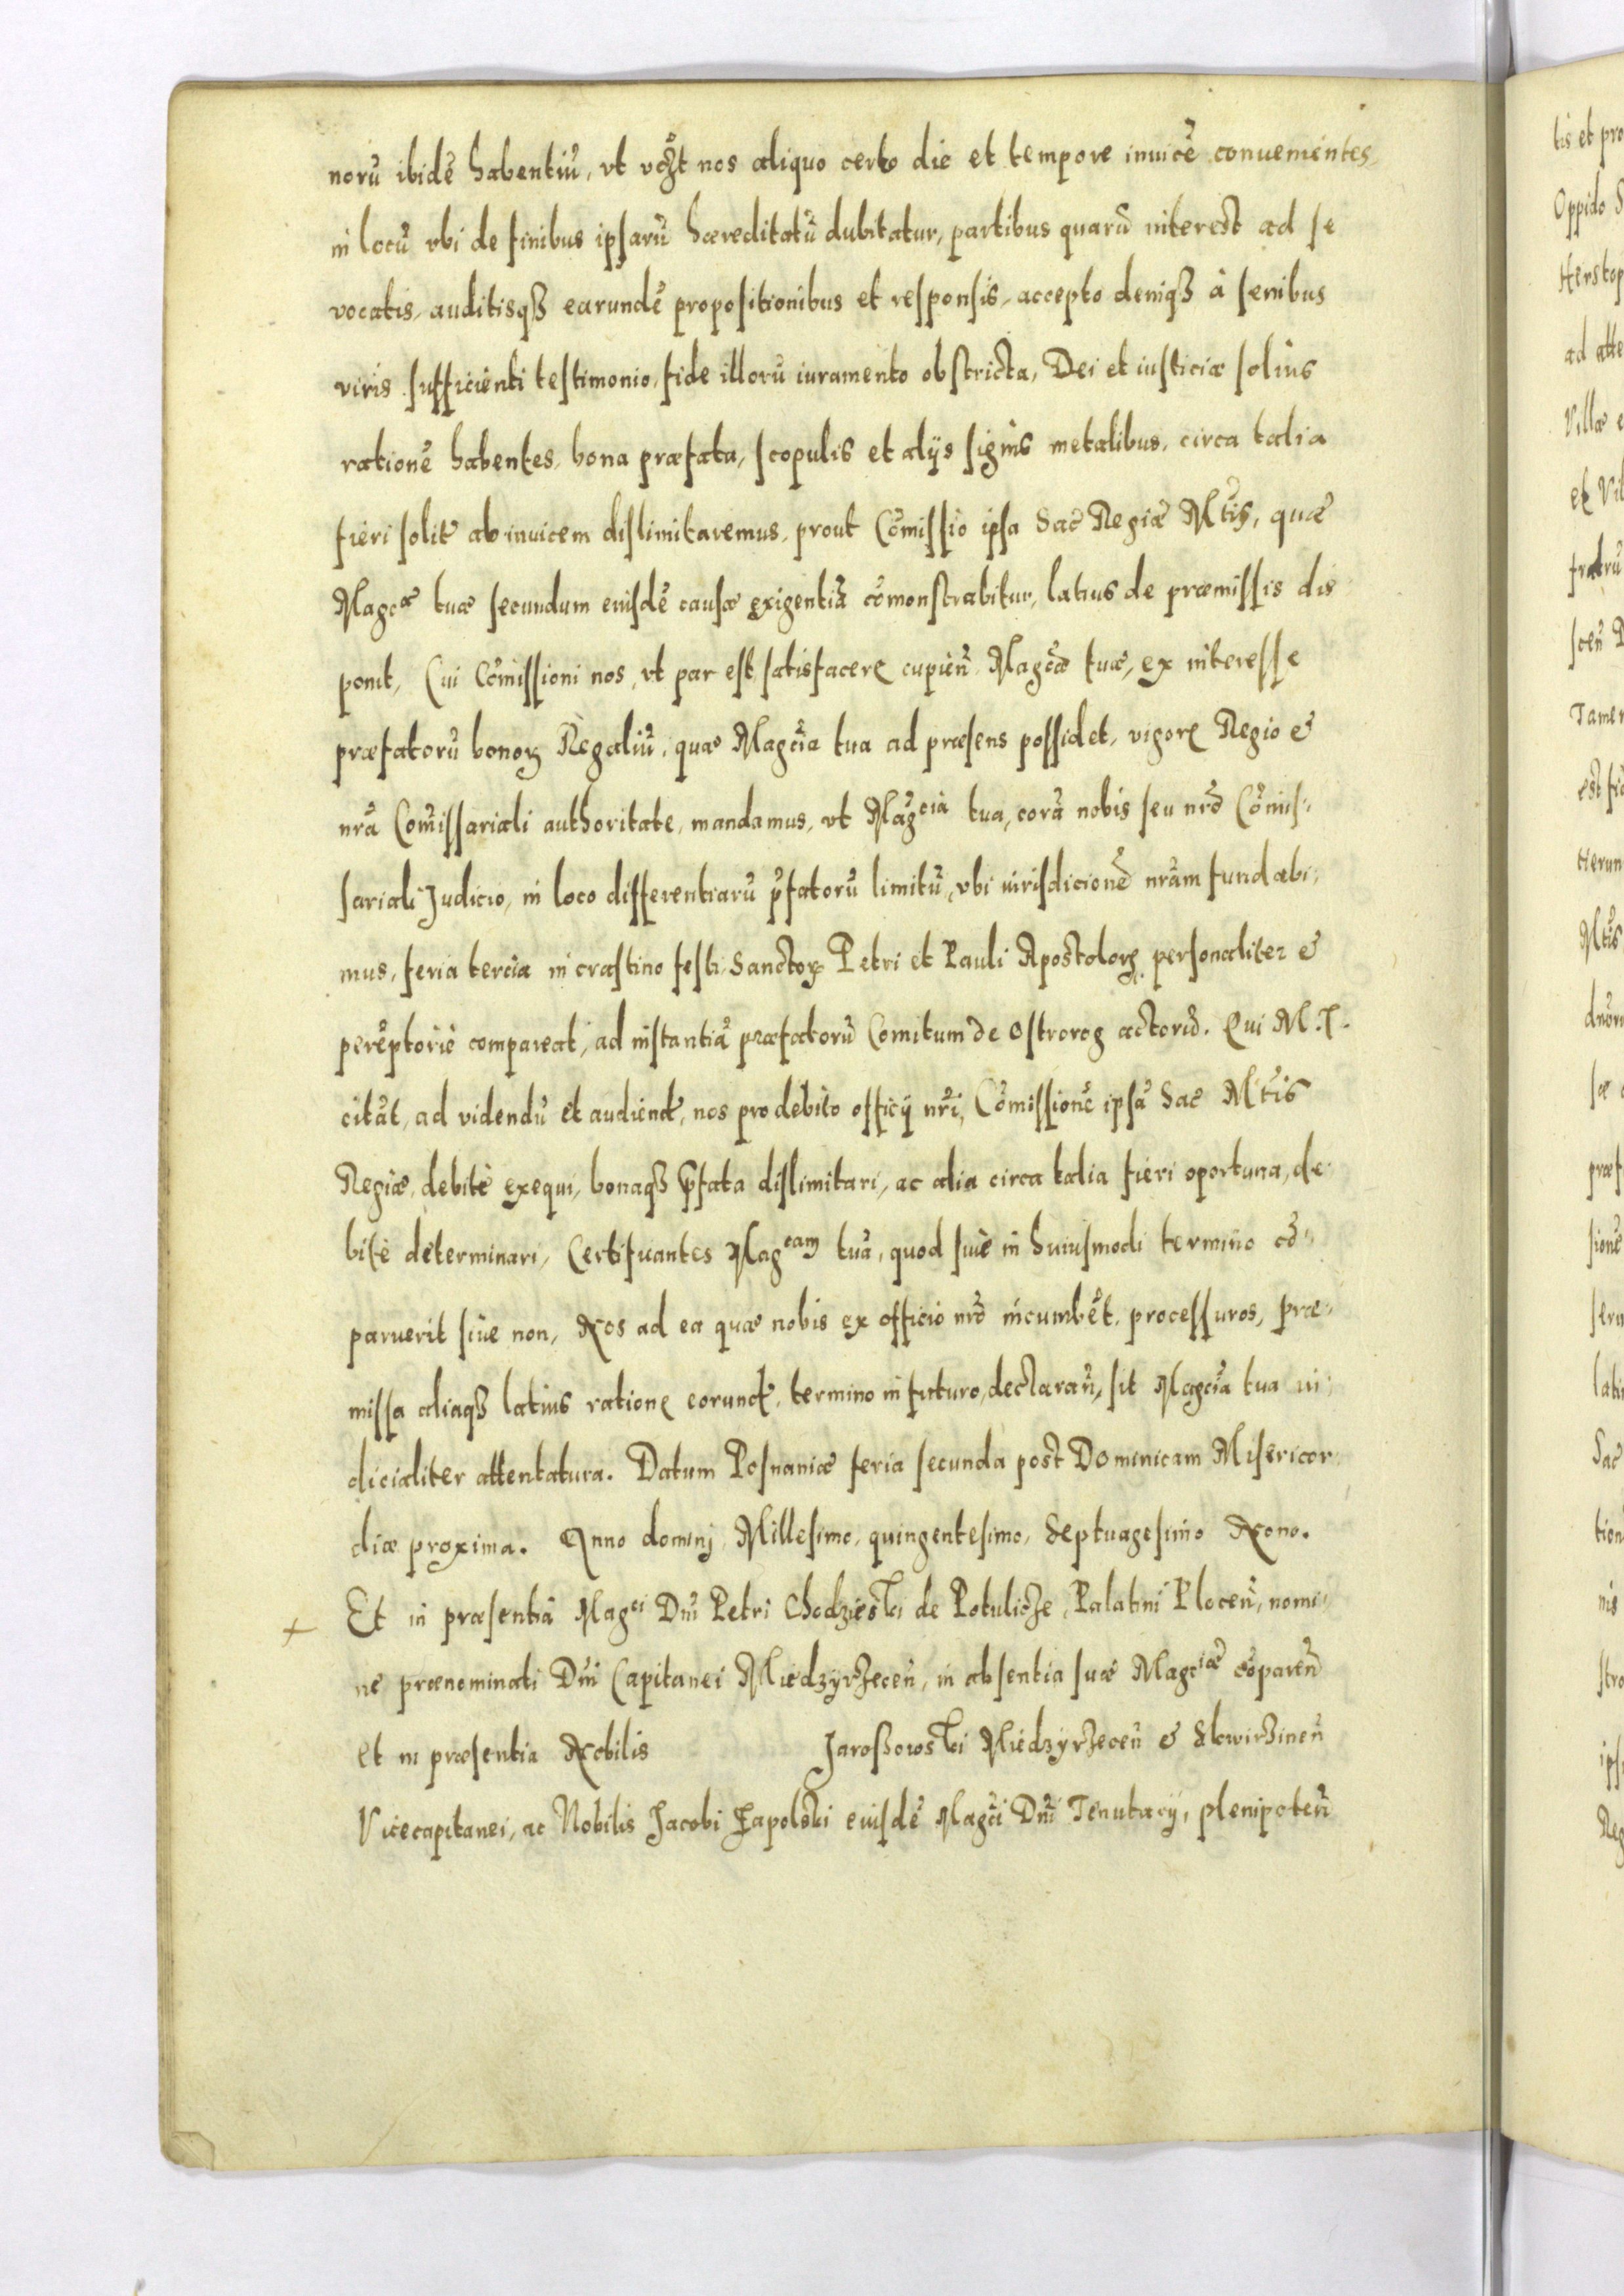 norũ ibidẽ habentiũ, vt nos aliquo certo die et tempore inuicẽ conuenientes,
in locũ vbi de finibus ipsarũ hæreditatũ dubitatur, partibus quarũ interest ad se
vocatis, auditisqȝ earundẽ propositionibus et responsis, accepto deniqȝ à senibus
viris sufficienti testimonio, fide illorũ iuramento obstricta, Dei et iusticiæ solius
rationẽ habentes, bona præfata, scopulis et alijs signis metalibus, circa talia
fieri solit̃ ab inuicem dislimitaremus, prout Cõmissio ipsa Sac̃ Regiæ Mtis̃, quæ
Magcæ tuæ secundum eiusdẽ causæ exigentiã cõmonstrabitur, latius de præmissis dis
ponit, Cui Cõmissioni nos, vt par est satisfacere cupieñ Magc̃æ tuæ, ex interesse
præfatorũ bonoꝝ Regaliũ, quæ Magc̃ia tua ad præsens possidet, vigore Regio et
nrã Com̃issariali authoritate, mandamus, vt Mag̃cia tua, corã nobis seu nrõ Cõmis-
sariali Judicio, in loco differentiarũ p̃fatorũ limitũ, vbi iurisdicionẽ nrãm fundabi-
mus, feria tercia in crastino festi Sanctoꝝ Petri et Pauli Apostoloꝝ personaliter et
perẽptoriè compareat, ad instantiã præfatorũ Comitum de Ostrorog actorũ. Qui M. T.
citãt, ad videndũ et audiend̃, nos pro debito officij nrĩ, Cõmissionẽ ipsã Sac̃ Mtĩs
Regiæ, debitè exequi, bonaqȝ p̃fata dislimitari, ac alia circa talia fieri oportuna, de-
bitè determinari, Certificantes Mageam tuã, quod siue in huiusmodi termino cõ-
paruerit siue non, Nos ad ea quæ nobis ex officio nrõ incumbẽt, processuros, præ-
missa aliaqȝ latius ratione eorund̃, termino in futuro, declarañ, sit Magc̃ia tua iu-
dicialiter attentatura. Datum Posnaniæ feria secunda post Dominicam Misericor
diæ proxima. Anno dominj Millesimo, quingentesimo, Septuagesimo Nono.
+ Et in præsentiã Magci Dñi Petri Chodzieski de Potulicze, Palatini Ploceñ, nomi-
ne prænominati Dñi Capitanei Miedzyrzeceñ, in absentia suæ Magciæ cõpareñ
et in præsentia Nobilis Jaroszowski Miedzyrzeceñ et Skwirzineñ
Vicecapitanei, ac Nobilis Jacobi Łapolski eiusdẽ Magc̃i Dñi Tenutarij, plenipoteñ
tis et pro
Oppido
Herstop
ad atte
Villæ
et Vil
fratrũ
sceñ
Tamen
Mtĩs
præf
sionẽ
lati
Sac̃
tion
nis
stro
ips
Reg